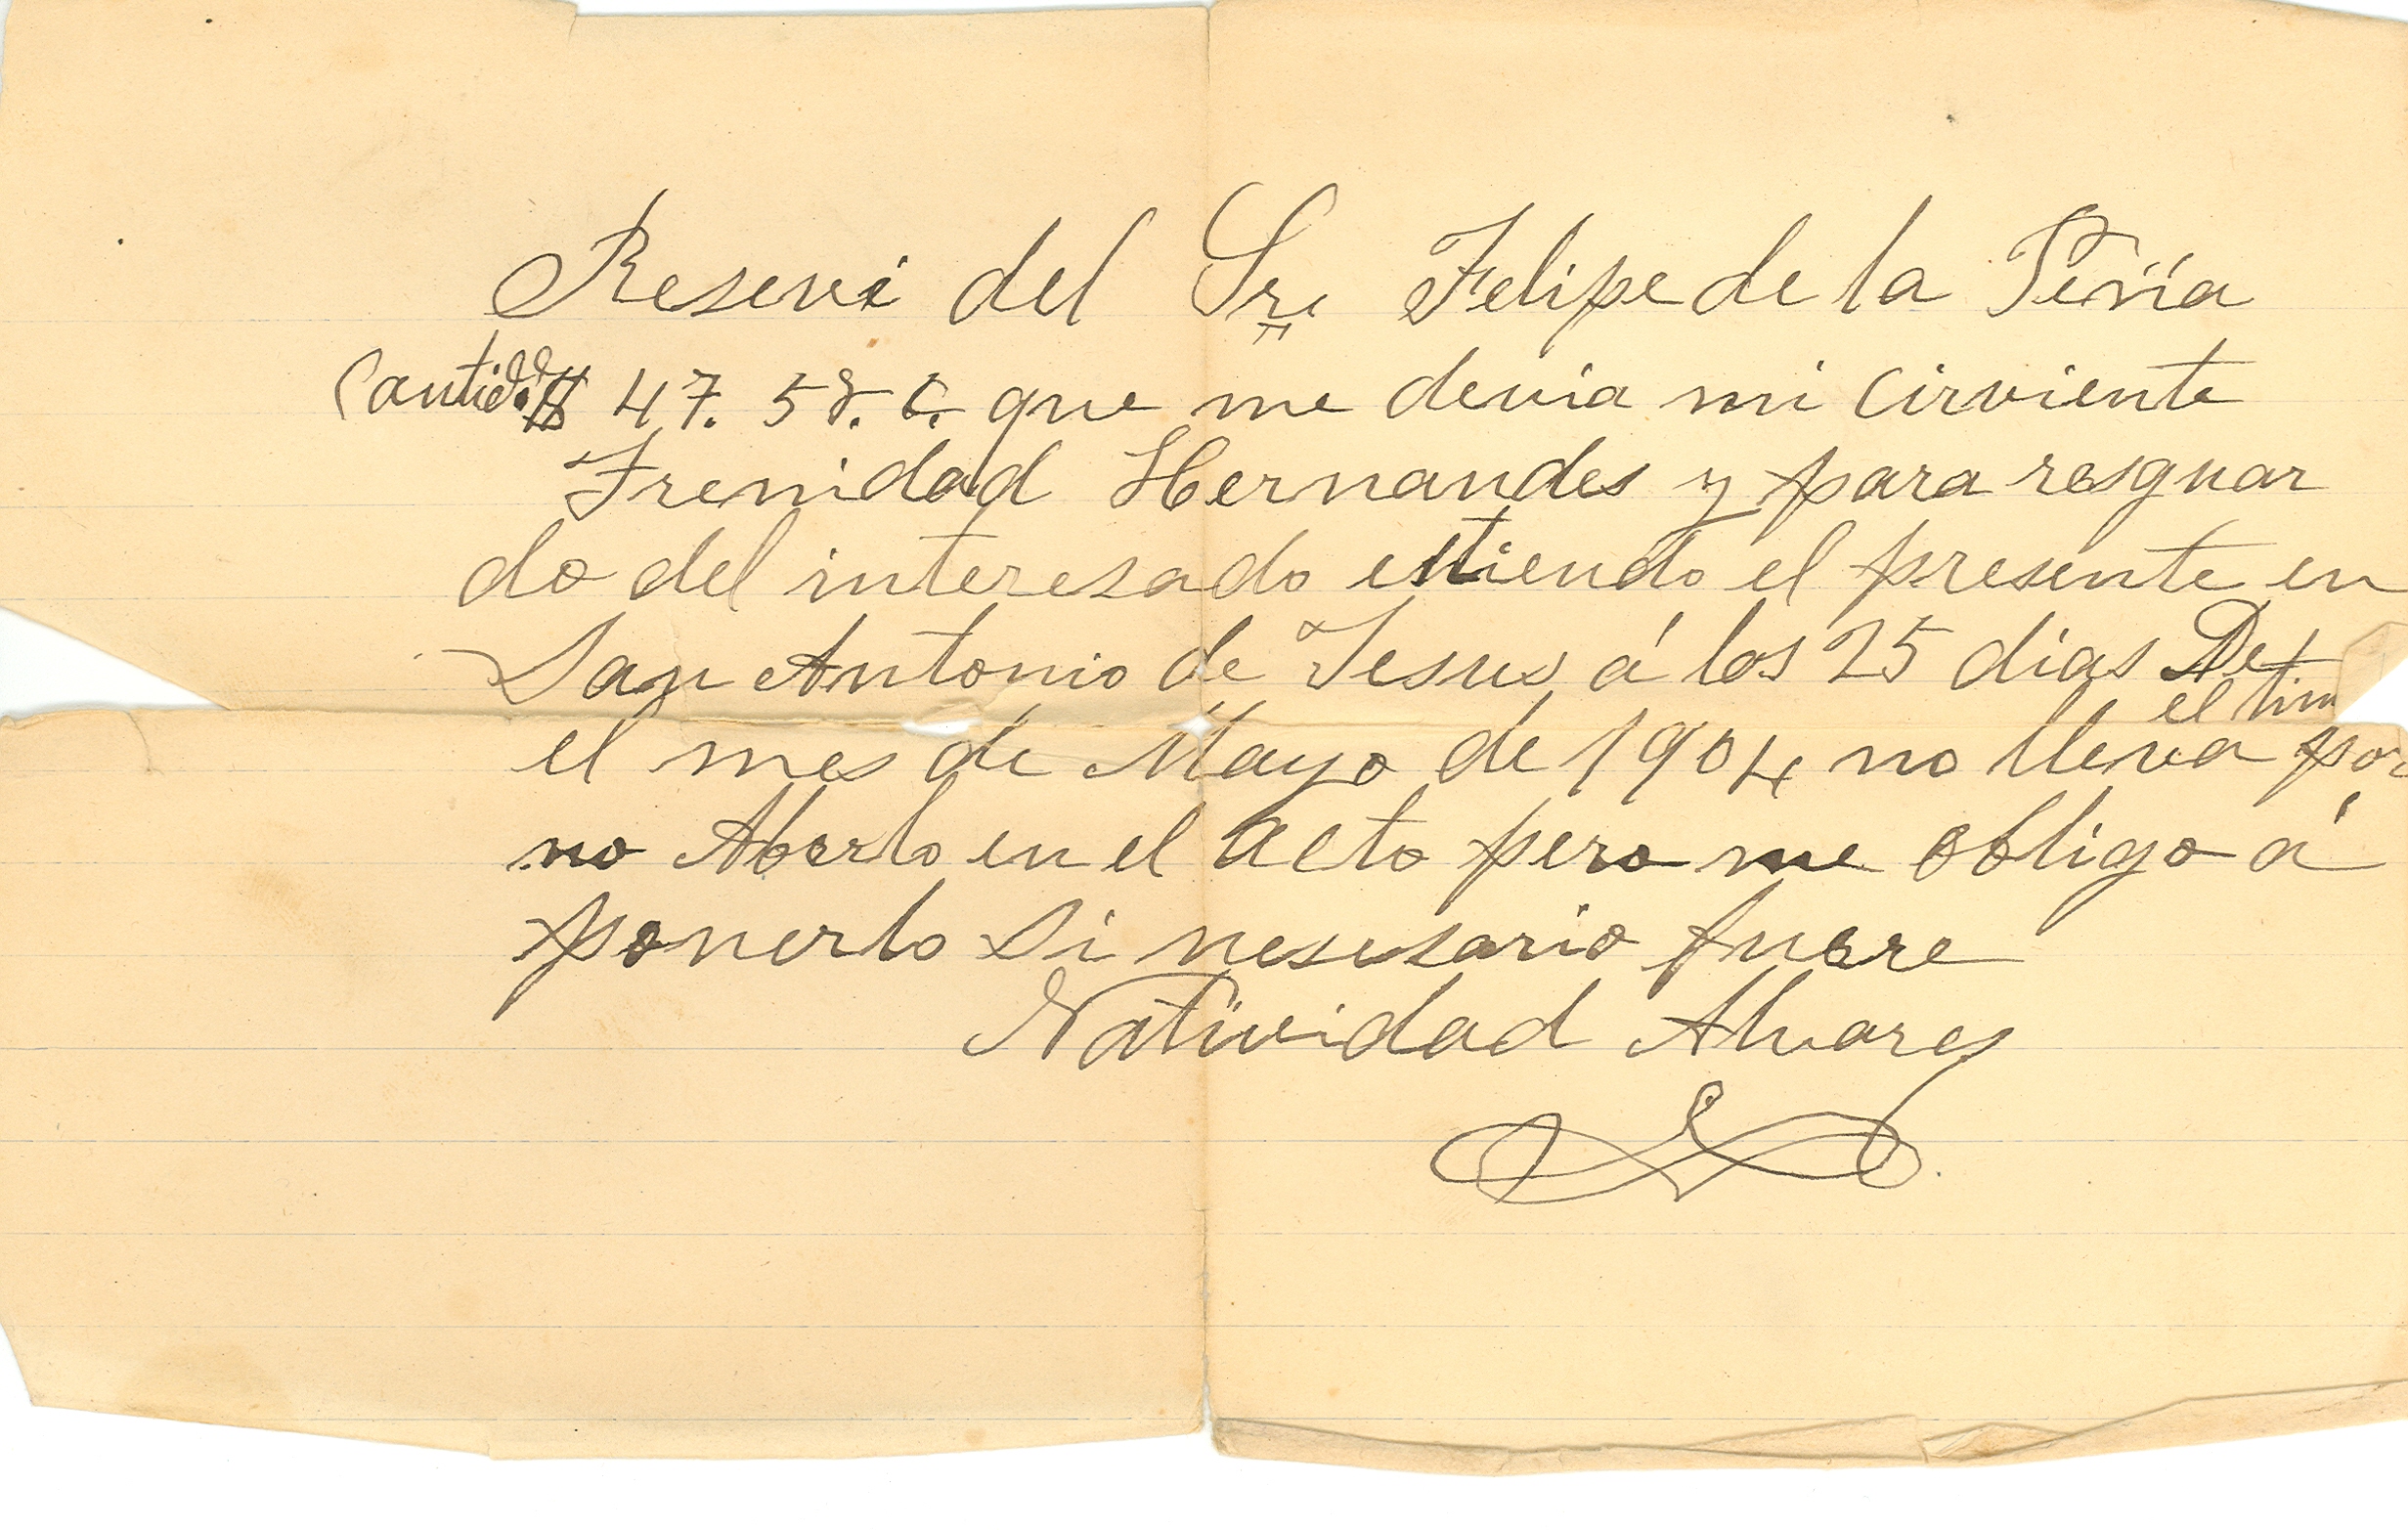 Resevi del Sre Felipe de la Peña
Cantidad $ 47. 58. c. que me devia mi cirviente
Trenidad Hernandes y para resguar
do del interesado estiendo el presente en
San Antonio de Jesus á los 25 dias De
el mes de Mayo de 1904 no lleva el tim por
no Aberlo en el acto pero me obligo á
ponerlo Si nesesario fuere
Natividad Alvares